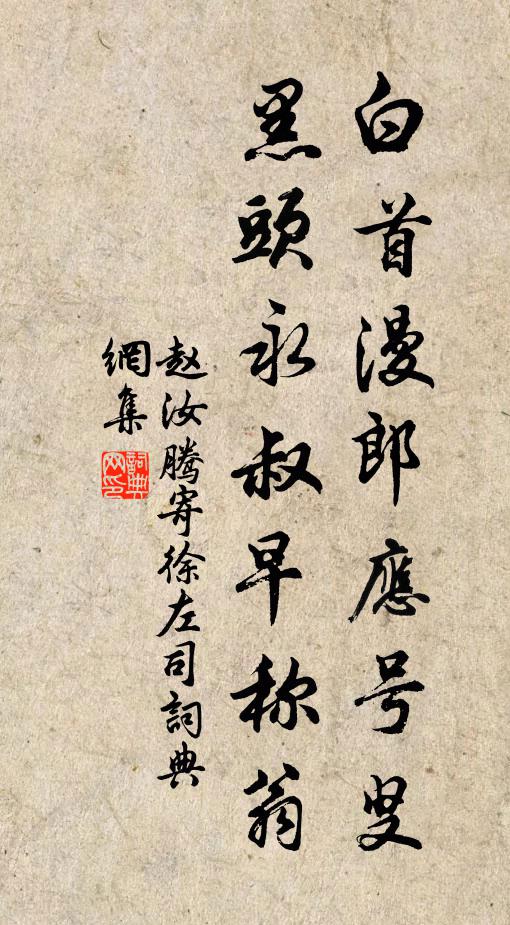 白首漫郎應号叟
黑頭永叔早称翁
赵汝騰寄徐左司詞典
網集
詞典網印